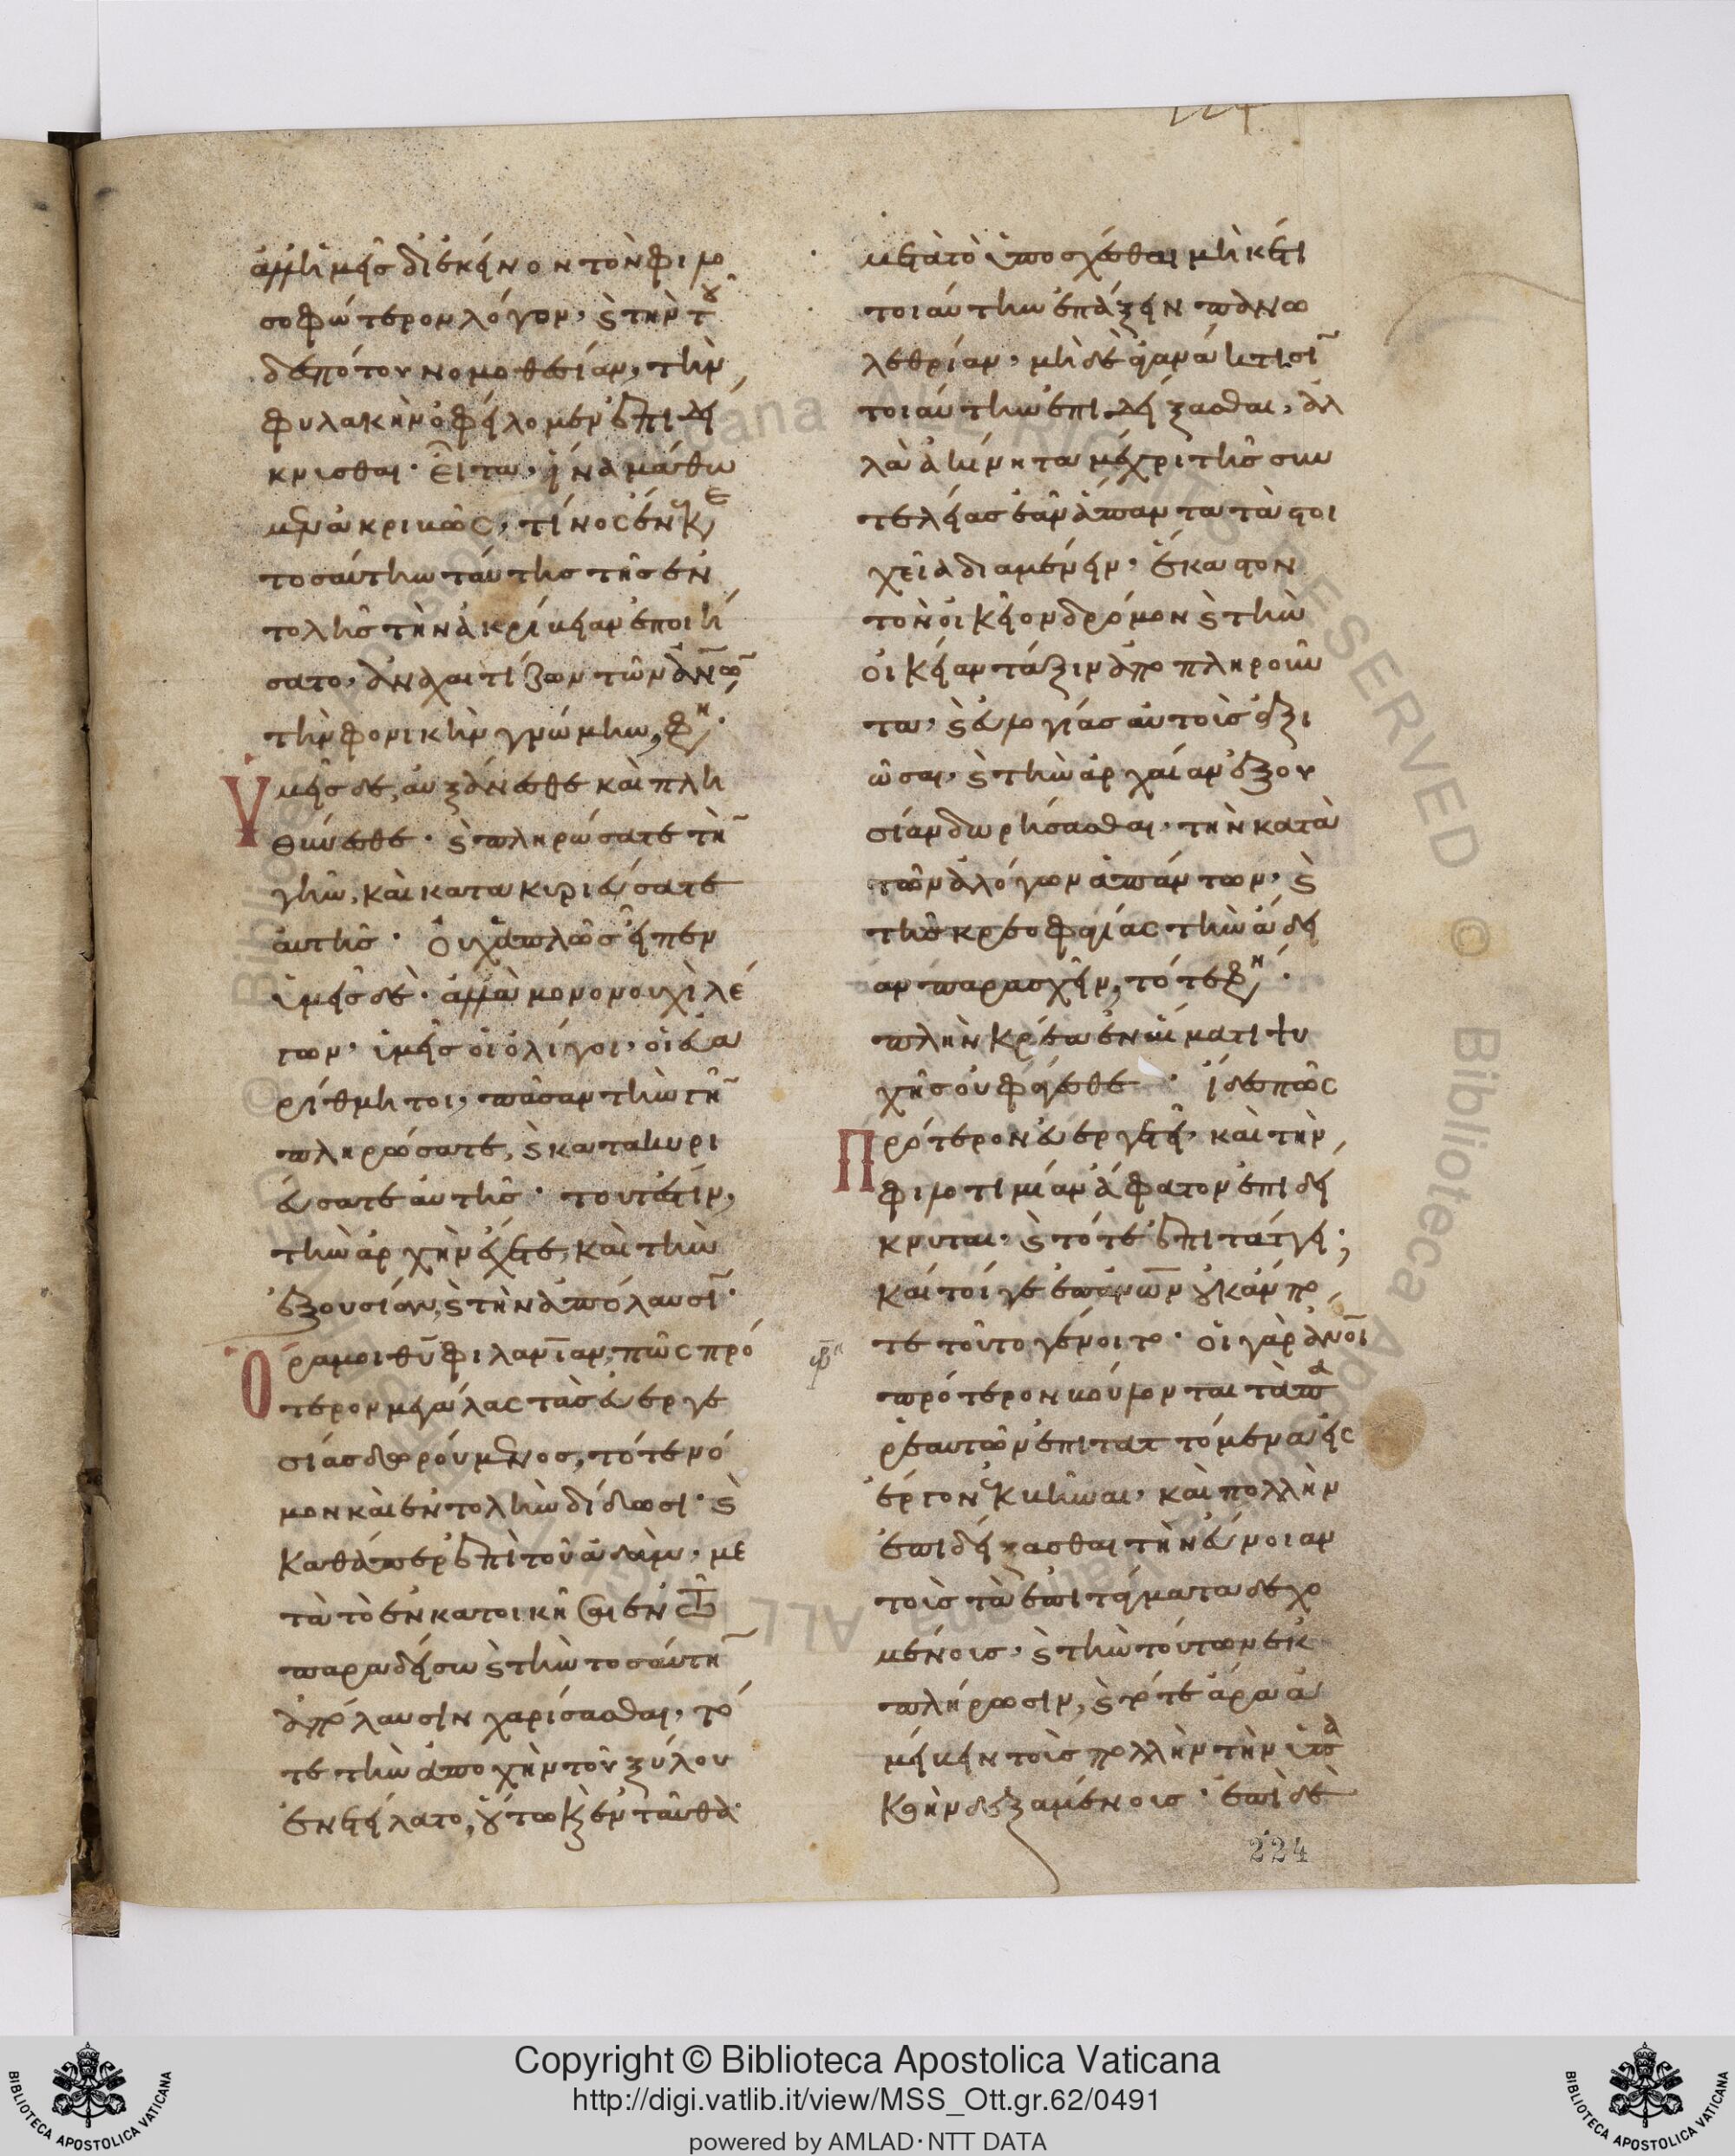 ἀλλ' ἡμεῖς δι' ἐκεῖνον τὸν φιλο
σοφώτερον λόγον, καὶ τὴν τοῦ
δεσπότου νομοθεσίαν, τὴν
φυλακὴν ὀφείλομεν ἐπιδεί
κνυσθαι. Εἶτα, ἵνα μάθω
μεν ἀκριβῶς, τίνος ἕνεκε
τοσαύτην ταύτης τῆς ἐν
τολῆς τὴν ἀκρίβειαν ἐποιή
σατο, ἀναχαιτίζων τῶν ἀνων
τὴν φονικὴν γνώμην, φη.
Ὑμεῖς δὲ, αὐξάνεσθε καὶ πλη
θύνεσθε. καὶ πληρώσατε τὴν
γῆν, καὶ κατακυριεύσατε
αὐτῆς. Οὐχ ἁπλῶς εἶπεν
ὑμεῖς δὲ. ἀλλὰ μονονουχὶ λέ
γων, ὑμεῖς οἱ ὀλίγοι, οἱ εὐα
ρίθμητοι, πᾶσαν τὴν γῆν
πληρώσατε, καὶ κατακυρι
εύσατε αὐτῆς. τουτέστιν,
τὴν ἀρχὴν ἔχετε, καὶ τὴν
ἐξουσίαν, καὶ τὴν ἀπόλαυσιν.
Ὅρα μοι θυ φιλανιαν, πῶς πρό
τερον μεγάλας τὰς εὐεργε
σίας δωρούμενος, τότε μό
νον καὶ ἐντολὴν δίδωσι. καὶ
καθάπερ ἐπὶ τοῦ ἀδὰμ, με
τὰ τὸ ἐνκατοικῆσαι ἐν τῷ
παραδείσω καὶ τὴν τοσαύτην
ἀπόλαυσιν χαρίσασθαι, τό
τε τὴν ἀποχὴν τοῦ ξύλου
ἐνετείλατο, οὕτω καὶ ἐνταῦθα
μετὰ τὸ ὑποσχέσθαι μηκέτι
τοιαύτην ἐπάξειν πανω
λεθρίαν, μηδὲ ἀγανάκτησιν
τοιαύτην ἐπιδείξασθαι, ἀλ
λὰ ἀκίνητα μέχρι τῆς συν
τελείας ἐᾶν ἅπαντα τὰ στοι
χεῖα διαμένειν, ἕκαστον
τὸν οἰκεῖον δρόμον καὶ τὴν
οἰκείαν τάξιν ἀποπληροῦν
τα, καὶ εὐλογίας αὐτοὺς ἀξι
ῶσαι, καὶ τὴν ἀρχαίαν ἐξου
σίαν δωρήσασθαι, τὴν κατὰ
τῶν ἀλόγων ἁπάντων, καὶ
τῆς κρεοφαγίας τὴν ἄδει
αν παρασχεῖν, τότε φη.
πλὴν κρέα ἐν αἵματι ψυ
χῆς οὐ φάγεσθε. εἶδες πῶς
Πρότερον εὐεργετεῖ, καὶ τὴν
φιλοτιμίαν ἄφατον ἐπιδεί
κνυται, καὶ τότε ἐπιτάττει;
καίτοιγε ἐπ' ἀνων οὐκ ἄν πο
τε τοῦτο γένοιτο. οἱ γὰρ ἀνοι
πρότερον βούλονται τὰ πα
ρ' ἑαυτῶν ἐπιταττόμενα εἰς
ἔργον ἐκβῆναι, καὶ πολλὴν
ἐπιδείξασθαι τὴν εὔνοιαν
τοῖς τὰ ἐπιτάγματα δεχο
μένοις, καὶ τὴν τούτων ἐκ
πλήρωσιν, καὶ τότε ἄρα ἀ
μείβειν τοὺς πολλὴν τὴν ὑπα
κοὴν δεξαμένοις. ἐπὶ δὲ
224
Copyright © Biblioteca Apostolica Vaticana
http://digi.vatlib.it/view/MSS_Ott.gr.62/0491
powered by AMLAD·NTT DATA